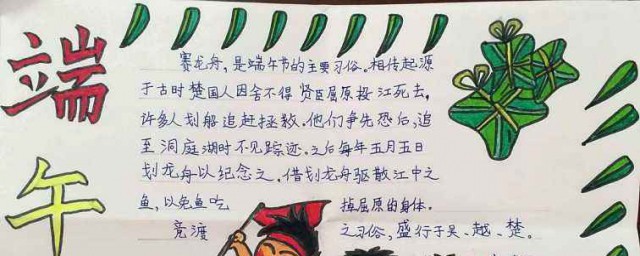 端午
赛龙舟，是端午节的主要习俗。相传起源
于古时楚国人因舍不得贤臣屈原投江死去，
许多人划船追赶拯救。他们争先恐后，追
至洞庭湖时不见踪迹。之后每年五月五日
划龙舟以纪念之。借划龙舟驱散江中之
鱼，以免鱼吃掉屈原的身体。
竞渡之习俗，盛行于吴、越、楚。